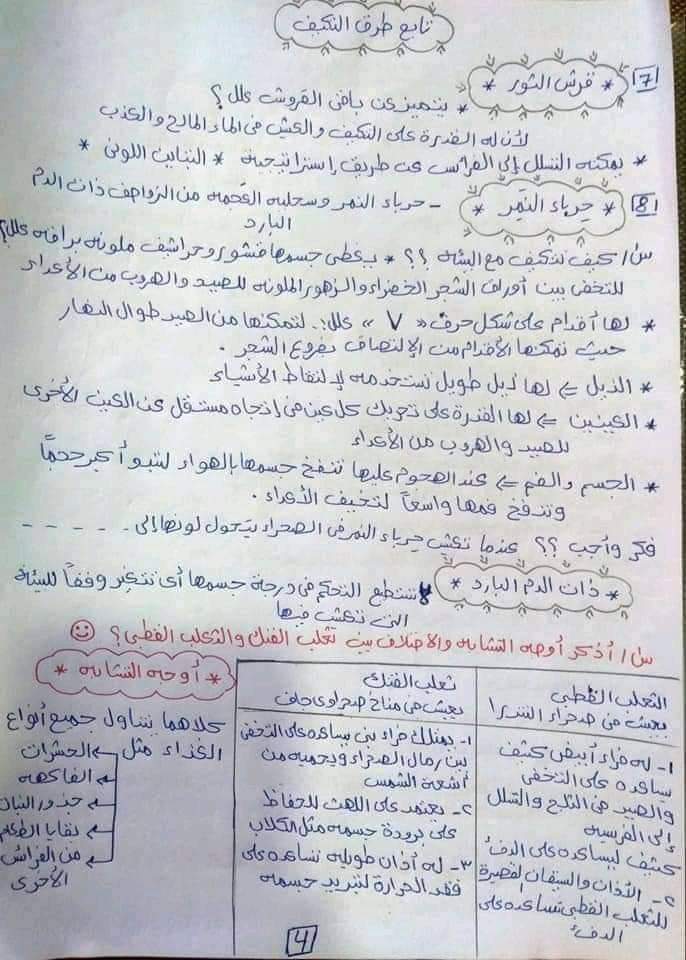 تابع طرق التكيف
7 * قرش الثور *
* يتميز عن باقي القروش علل ؟
لأن له القدرة على التكيف والعيش في الماء المالح والعذب
* يمكنه التسلل إلى الفرائس عن طريق إستراتيجية * التباين اللوني *
8 * حرباء النمر * - حرباء النمر وسحلية الفحمة من الزواحف ذات الدم
البارد
س/ كيف تتكيف مع البيئة ؟؟ * يغطى جسمها قشور وحراشيف ملونه براقه علل؟
للتخفي بين أوراق الشجر الخضراء والزهور الملونه للصيد والهروب من الأعداء
* لها أقدام على شكل حرف « V » علل؟. لتمكنها من الصيد طوال النهار
حيث تمكنها الأقدام من الإلتصاق بفروع الشجر .
* الذيل ⇐ لها ذيل طويل تستخدمه لإلتقاط الأشياء
* العينين ⇐ لها القدرة على تحريك كل عين في إتجاه مستقل عن العين الأخرى
للصيد والهروب من الأعداء
* الجسم والفم ⇐ عند الهجوم عليها تنفخ جسمها بالهواء لتبدو أكبر حجمًا
وتنفخ فمها واسعاً لتخيف الأعداء .
فكر وأجب ؟؟ عندما تعيش حرباء النمر في الصحراء يتحول لونها إلى - - - - -
* ذات الدم البارد * لا تستطع التحكم في درجة جسمها أي تتغير وفقاً للبيئة
التى تعيش فيها
س/ أذكر أوجه التشابه والاختلاف بين ثعلب الفنك والثعلب القطبي؟ ☺
الثعلب القطبي
يعيش في صحراء التندرا
١- له فراء أبيض كثيف
يساعده على التخفي
والصيد في الثلج والتسلل
إلى الفريسه
كثيف ليساعده على الدفء
٢- الأذان والسيقان القصيرة
للثعلب القطبي تساعده على
الدفء
ثعلب الفنك
يعيش في مناخ صحراوي جاف
١- يمتلك فراء بني يساعده على التخفي
بين رمال الصحراء ويحميه من
أشعة الشمس
٢- يعتمد على اللهث للحفاظ
على برودة جسمه مثل الكلاب
٣- له أذان طويله تساعده على
فقد الحرارة لتبريد جسمه
* أوجه التشابه *
كلاهما يتناول جميع أنواع
الغذاء مثل
الحشرات
الفاكهه
جذور النبات
بقايا الطعام
من الفرائس
الأخرى
4